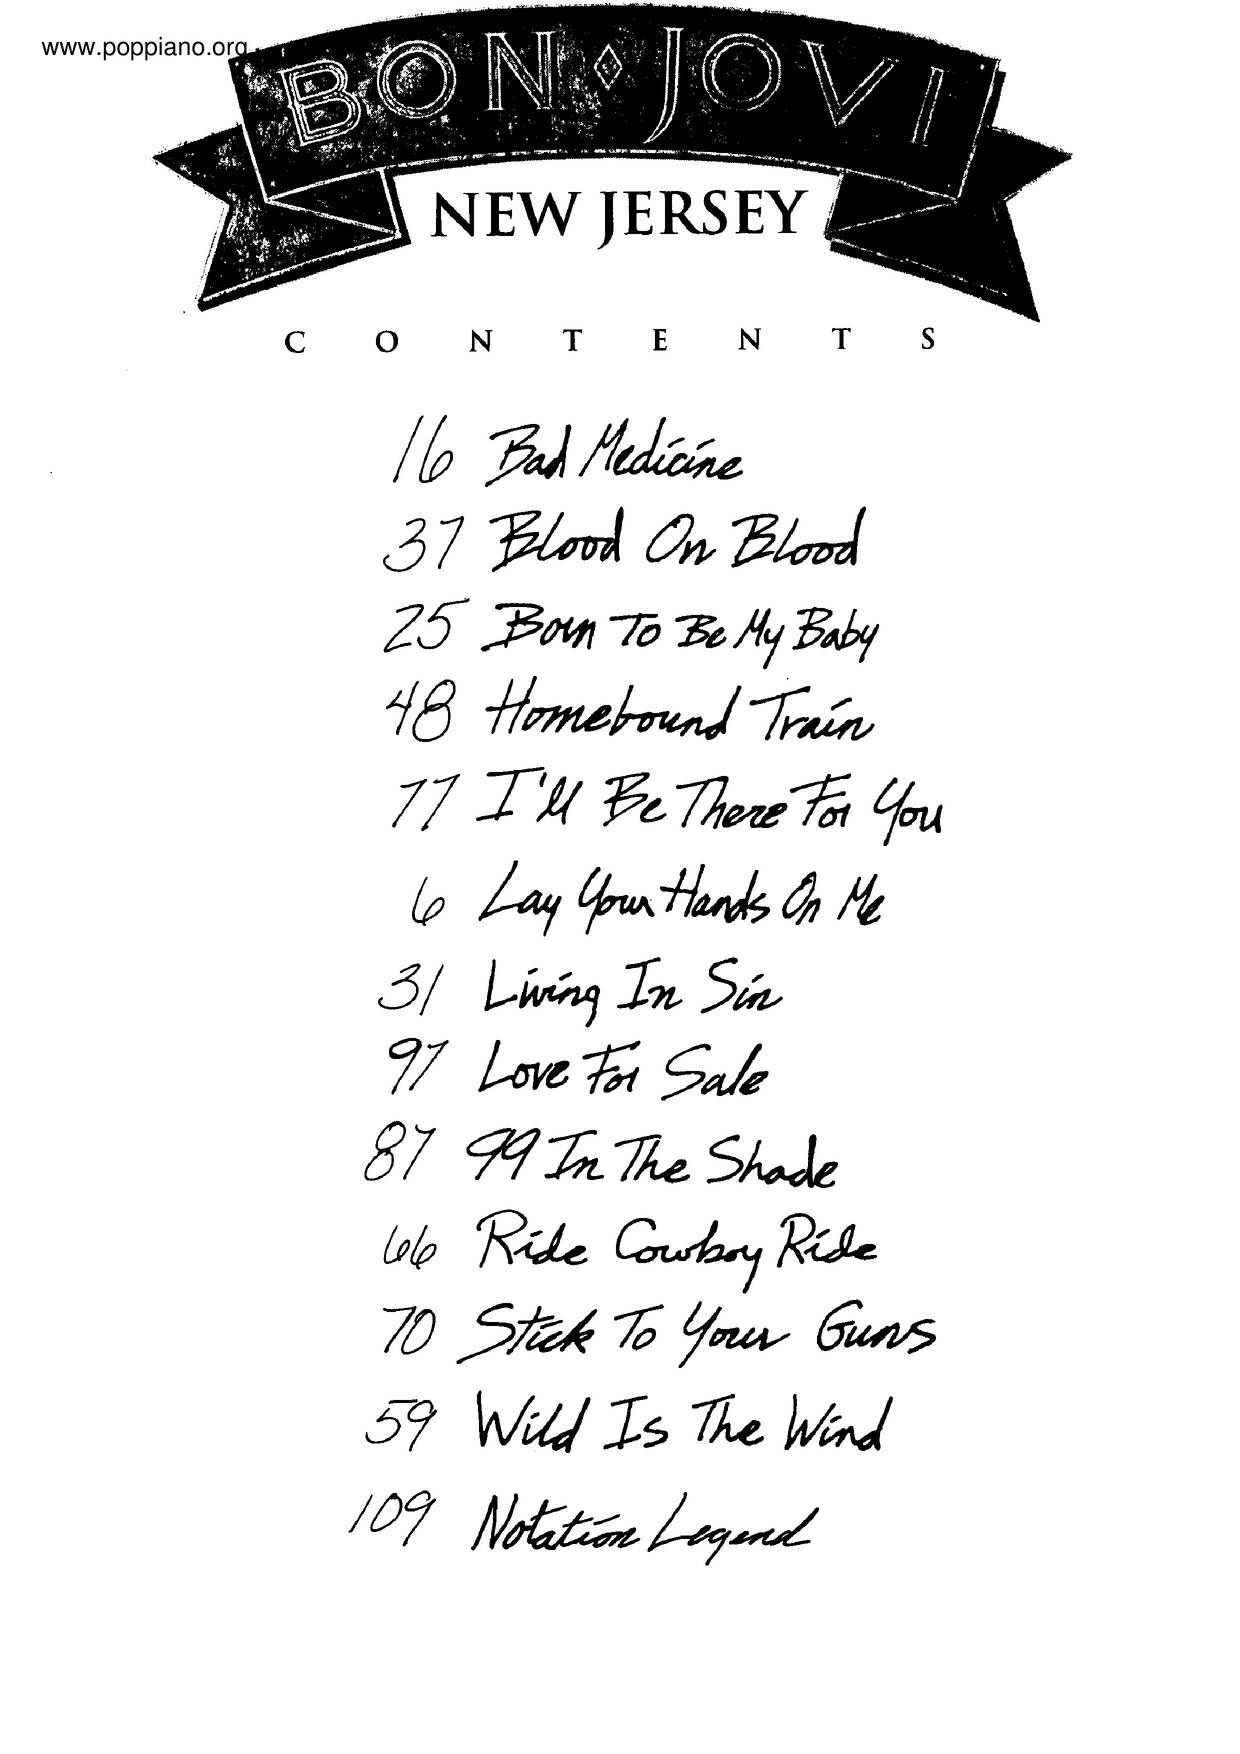 www.poppiano.org
BON JOVI
NEW JERSEY
CONTENTS
16 Bad Medicine
37 Blood On Blood
25 Born To Be My Baby
48 Homebound Train
77 I'll Be There For You
6 Lay Your Hands On Me
31 Living In Sin
97 Love For Sale
87 99 In The Shade
66 Ride Cowboy Ride
70 Stick To Your Guns
59 Wild Is The Wind
109 Notation Legend